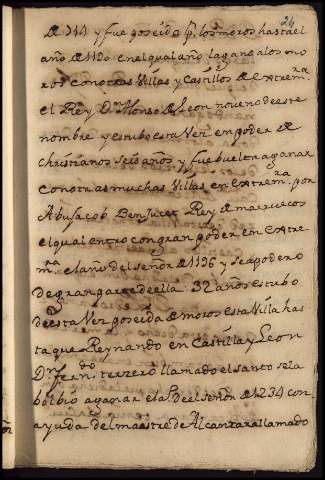 24
de 714 y fue poseida pr. los moros hasta el
año de 1190 en el qual año la gano a los mo
ros con otras Villas y Castillos de Extrem.ra
el Rey Dn. Alonso de Leon noveno de este
nombre y estubo esta Vez en poder de
Christianos seis años y fue buelta a ganar
con otras muchas Villas en Extrem.ra por
Abu Jacob Ben Jucet Rey de marruecos
el qual entro con gran poder en Extre
m.ra el año del señor de 1196 y se apodero
de gran parte de ella: 32 años estubo
de esta Vez poseida de moros esta Villa has
ta que Reynando en Castilla y Leon
Dn. Fern.do terzero llamado el santo se la
bolbio a ganar el a.o del señor de 1234 con
ayuda del maestre de Alcantara llamado